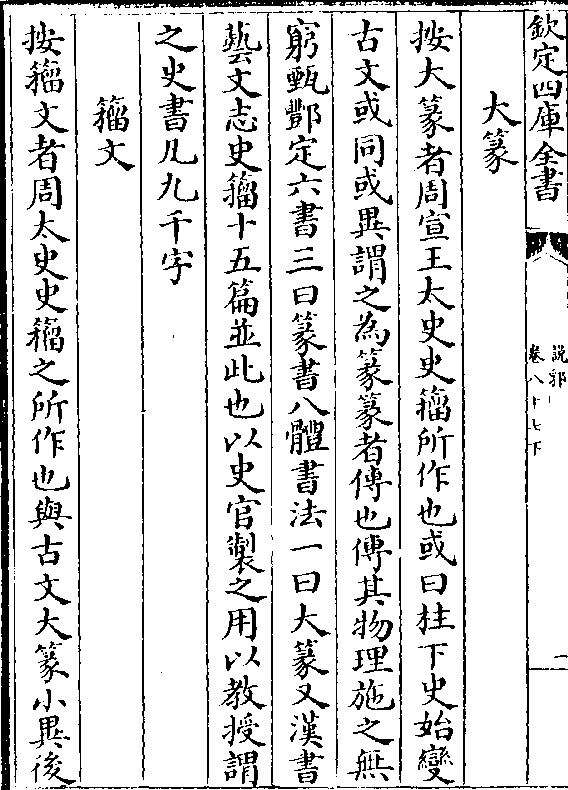 欽定四庫全書
說郛
卷八十七下
一
大篆
按大篆者周宣王太史史籀所作也或曰柱下史始變
古文或同或異謂之為篆篆者傳也傳其物理施之無
窮甄酆定六書三曰篆書八體書法一曰大篆又漢書
藝文志史籀十五篇並此也以史官製之用以教授謂
之史書凡九千字
籀文
按籀文者周太史史籀之所作也與古文大篆小異後